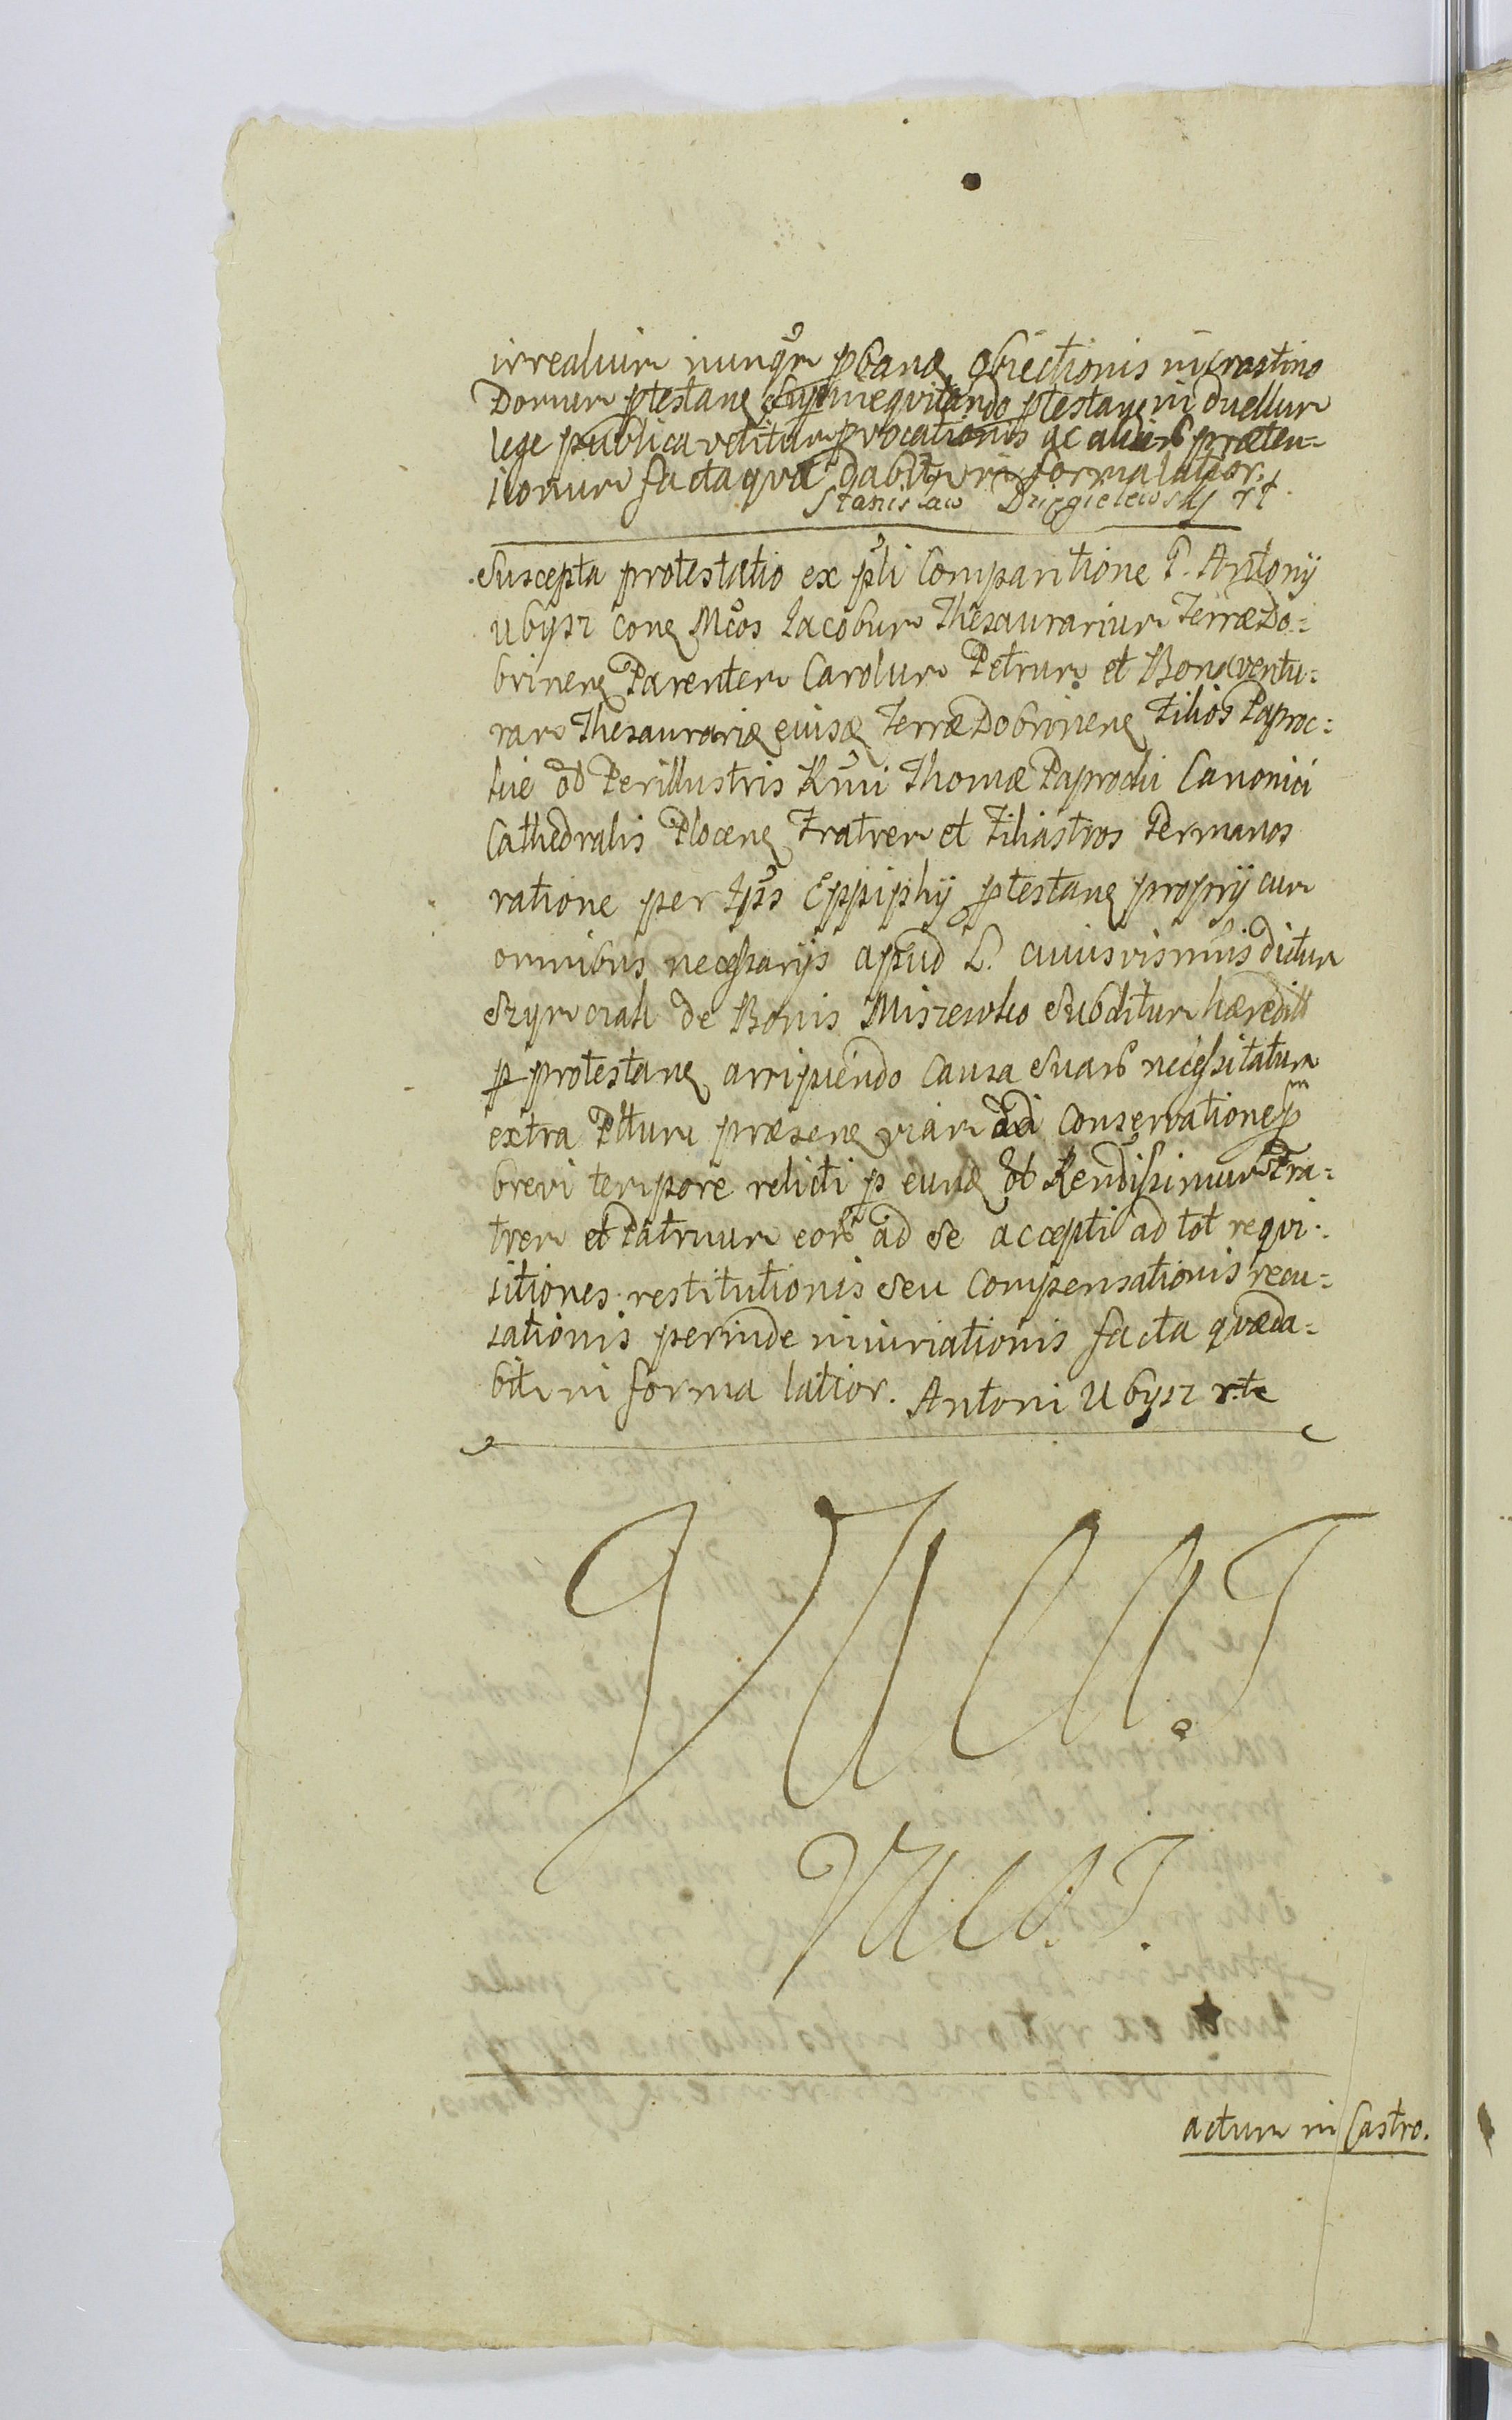 irrealium nunqm pband obiectionis in crastino
Domum ptestans supinequitando ptestans in duellum
lege publica vetitum pvocationis ac aliar prten=
sionum facta quæ dabitur in forma latior.
Stanisław Dzięgielewsky rt.
Suscepta protestatio ex pti Comparitione P. Antonij
Ubysz cons Mcos Jacobum Thesaurarium Terræ Do=
brinens Parentem Carolum Petrum et Bonaventu=
ram Thesaurarid eiusd Terræ Dobrinens Filios Paproc=
kie ob Perillustris Rmi Thomæ Paprocki Canonici
Cathedralis Plocens Fratrem et Filiastros Germanos
ratione per Ipss Eppiphij ptestans proprij cum
omnibus necessarijs apud L. cuiusvis nnis dictum
Szymczak de Bonis Miszewko Subditum hæredit
p protestans arripiendo causa suar necessitatum
extra Pttum præsens viam ad conservationem p
brevi tempore relicti p eund ob Rendissimum Fra=
trem et Patruum eor ad se accepti ad tot requi=
sitiones restitutionis seu compensationis recu=
sationis perinde iniuriationis facta quæ da=
bitr in forma latior. Antoni Ubysz rte
VACAT
VACAT.
actum in Castro.